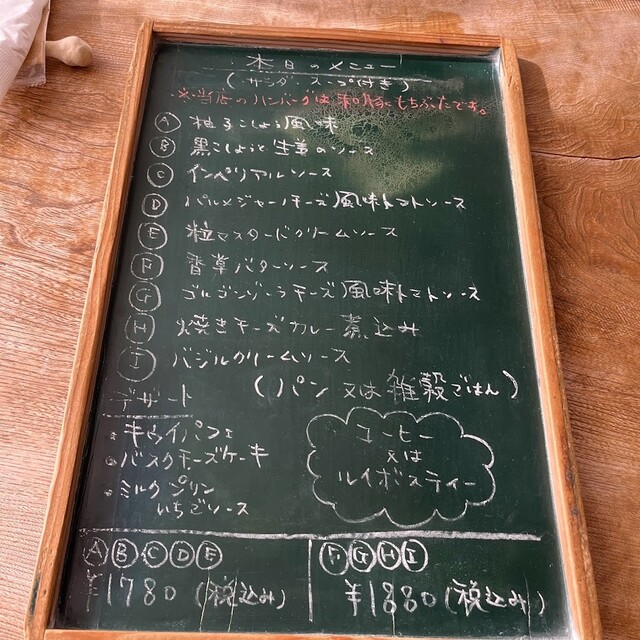 本日のメニュー
(サラダ、スープ付き)
※当店のハンバーグは和豚もちぶたです。
Ⓐ 柚子こしょう風味
Ⓑ 黒こしょうと生姜のソース
Ⓒ インペリアルソース
Ⓓ パルメジャーノチーズ風味トマトソース
Ⓔ 粒マスタードクリームソース
Ⓕ 香草バターソース
Ⓖ ゴルゴンゾーラチーズ風味トマトソース
Ⓗ 焼きチーズカレー煮込み
Ⓘ バジルクリームソース
(パン又は雑穀ごはん)
デザート
・キウイパフェ
・バスクチーズケーキ
・ミルクプリン
いちごソース
コーヒー
又は
ルイボスティー
ⒶⒷⒸⒹⒺ
¥1780(税込み)
ⒻⒼⒽⒾ
¥1880(税込み)